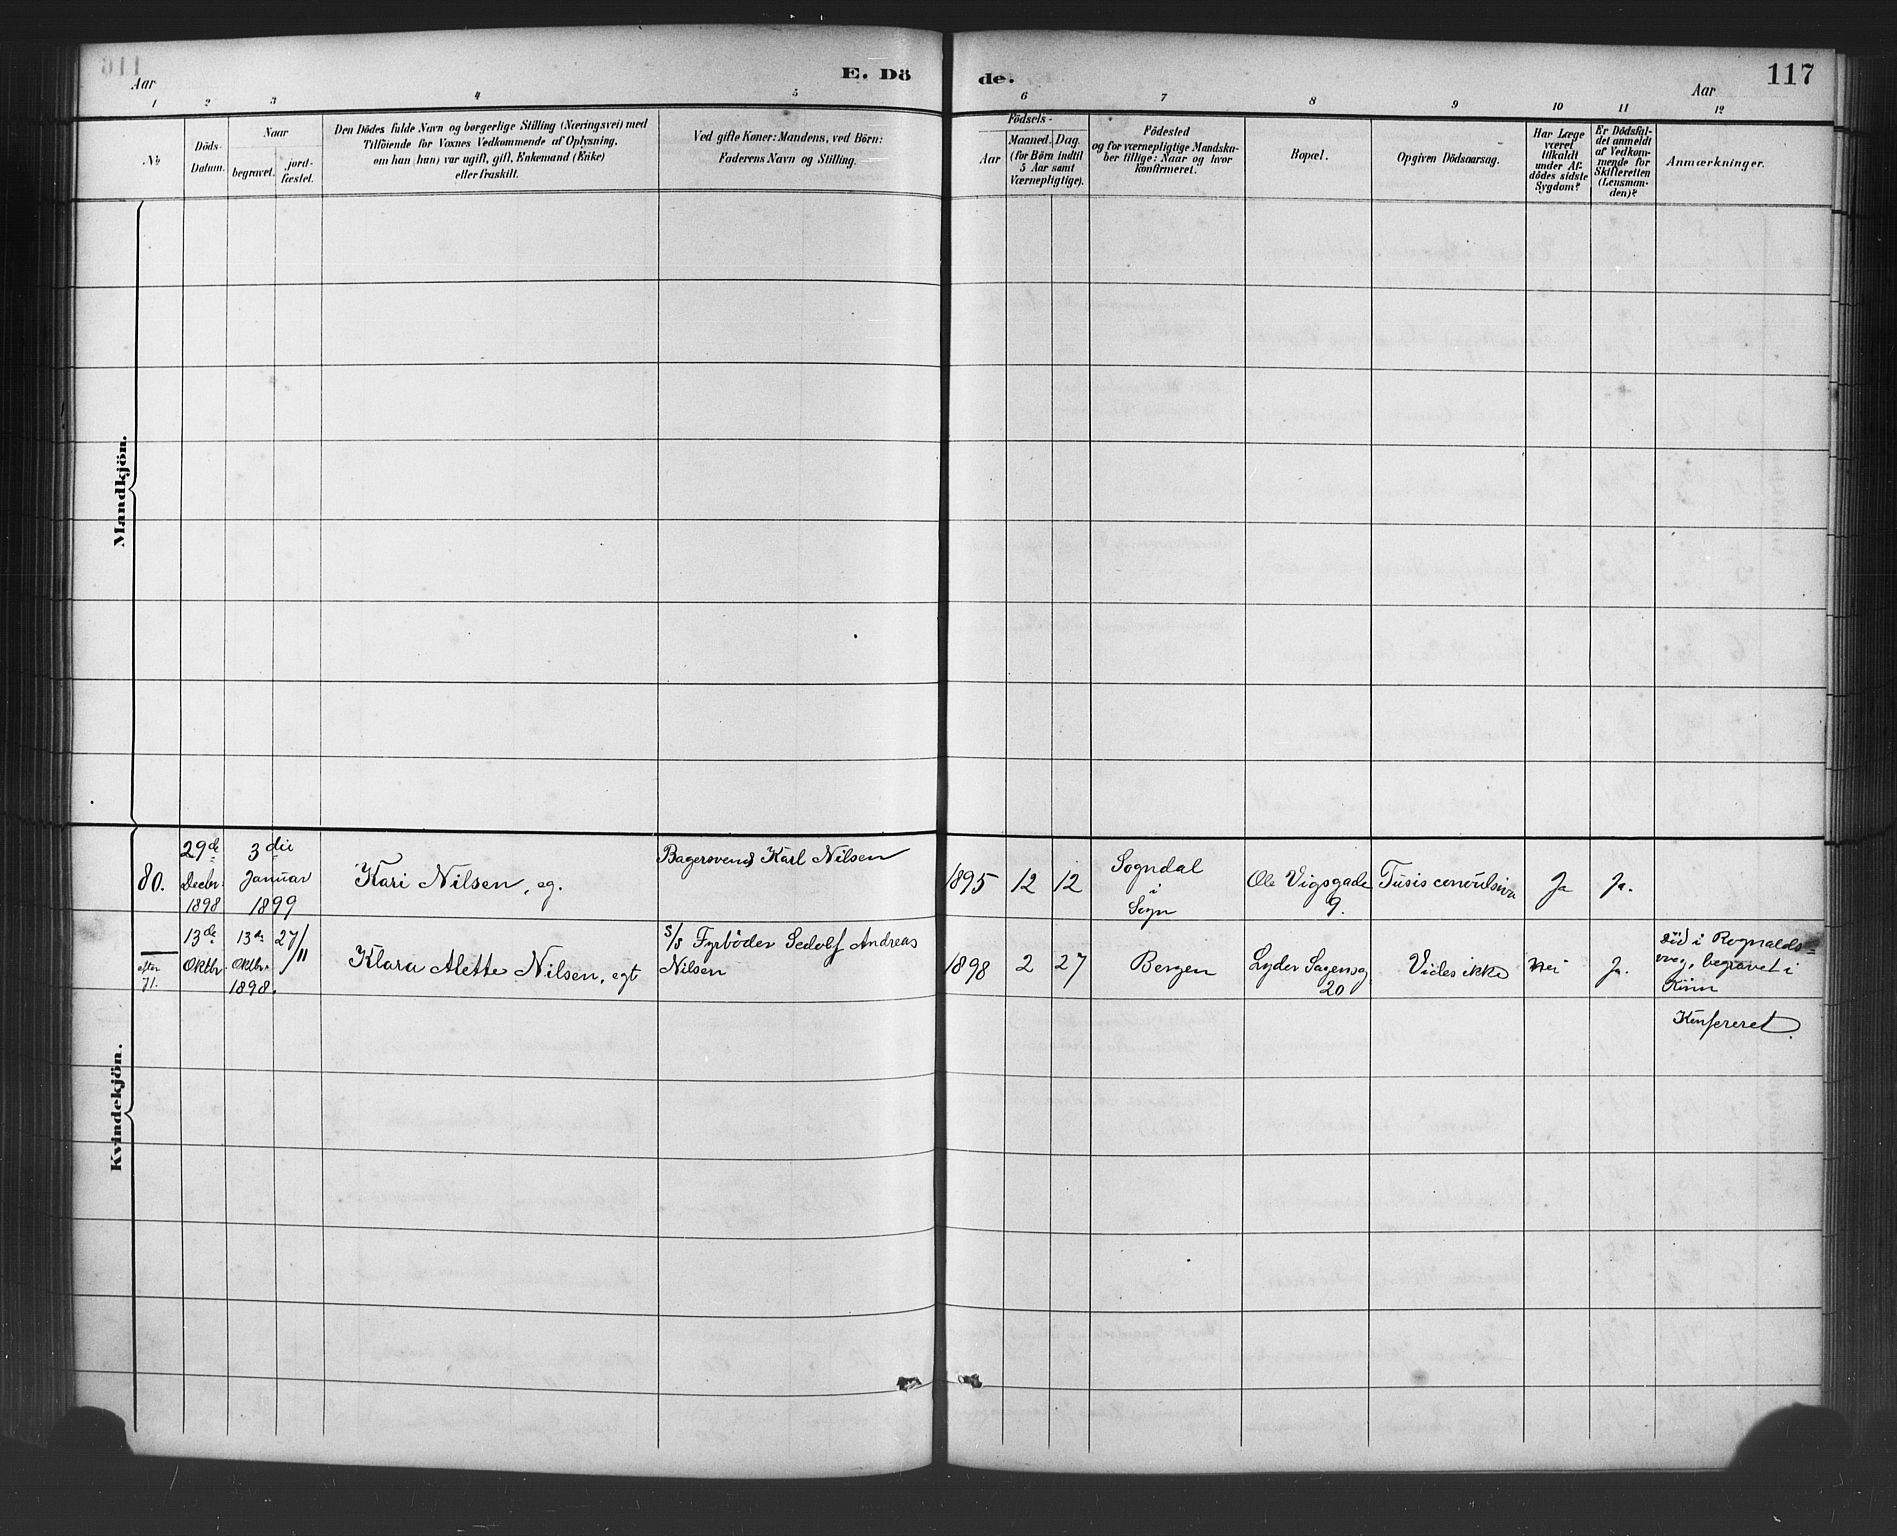 E. Dö de.
117
Aar
Aar
1 2 3 4 5 6 7 8 9 10 11 12
No
Döds-Datum.
Naar
begravet.
jord-fæstet.
Den Dödes fulde Navn og borgerlige Stilling (Næringsvei) med
Tilföiende for Voxnes Vedkommende af Oplysning,
om han (hun) var ugift, gift, Enkemand (Enke)
eller fraskilt.
Ved gifte Koner: Mandens, ved Börn:
Faderens Navn og Stilling.
Födsels-
Aar
Maaned. Dag.
(for Börn indtil
5 Aar samt
Værnepligtige).
Födested
og for værnepligtige Mandska-
ber tillige: Naar og hvor
konfirmeret.
Bopæl.
Opgiven Dödsaarsag.
Har Læge
været
tilkaldt
under Af-
dödes sidste
Sygdom?
Er Dödsfal-
det anmeldt
af Vedkom-
mende for
Skifteretten
(Lensman-
den)?
Anmærkninger.
Mandkjön.
80.
29de
Decbr.
1898
3die
Januar
1899
Kari Nilsen, eg.
Bagersvend Karl Nilsen
1895 12 12
Sogndal
i
Sogn
Ole Vigsgade
9.
Tusis convulsiva
Ja
Ja.
efter
71.
13de
Oktbr.
13de
Oktbr.
1898.
27/11
Klara Alette Nilsen, egt
s/s Fyrböder Sedolf Andreas
Nilsen
1898 2 27
Bergen
Lyder Sagensg
20
Vides ikke
Nei
Ja.
död i Rognalds-
vaag, begravet i
Kinn
Konfereret.
Kvindekjön.